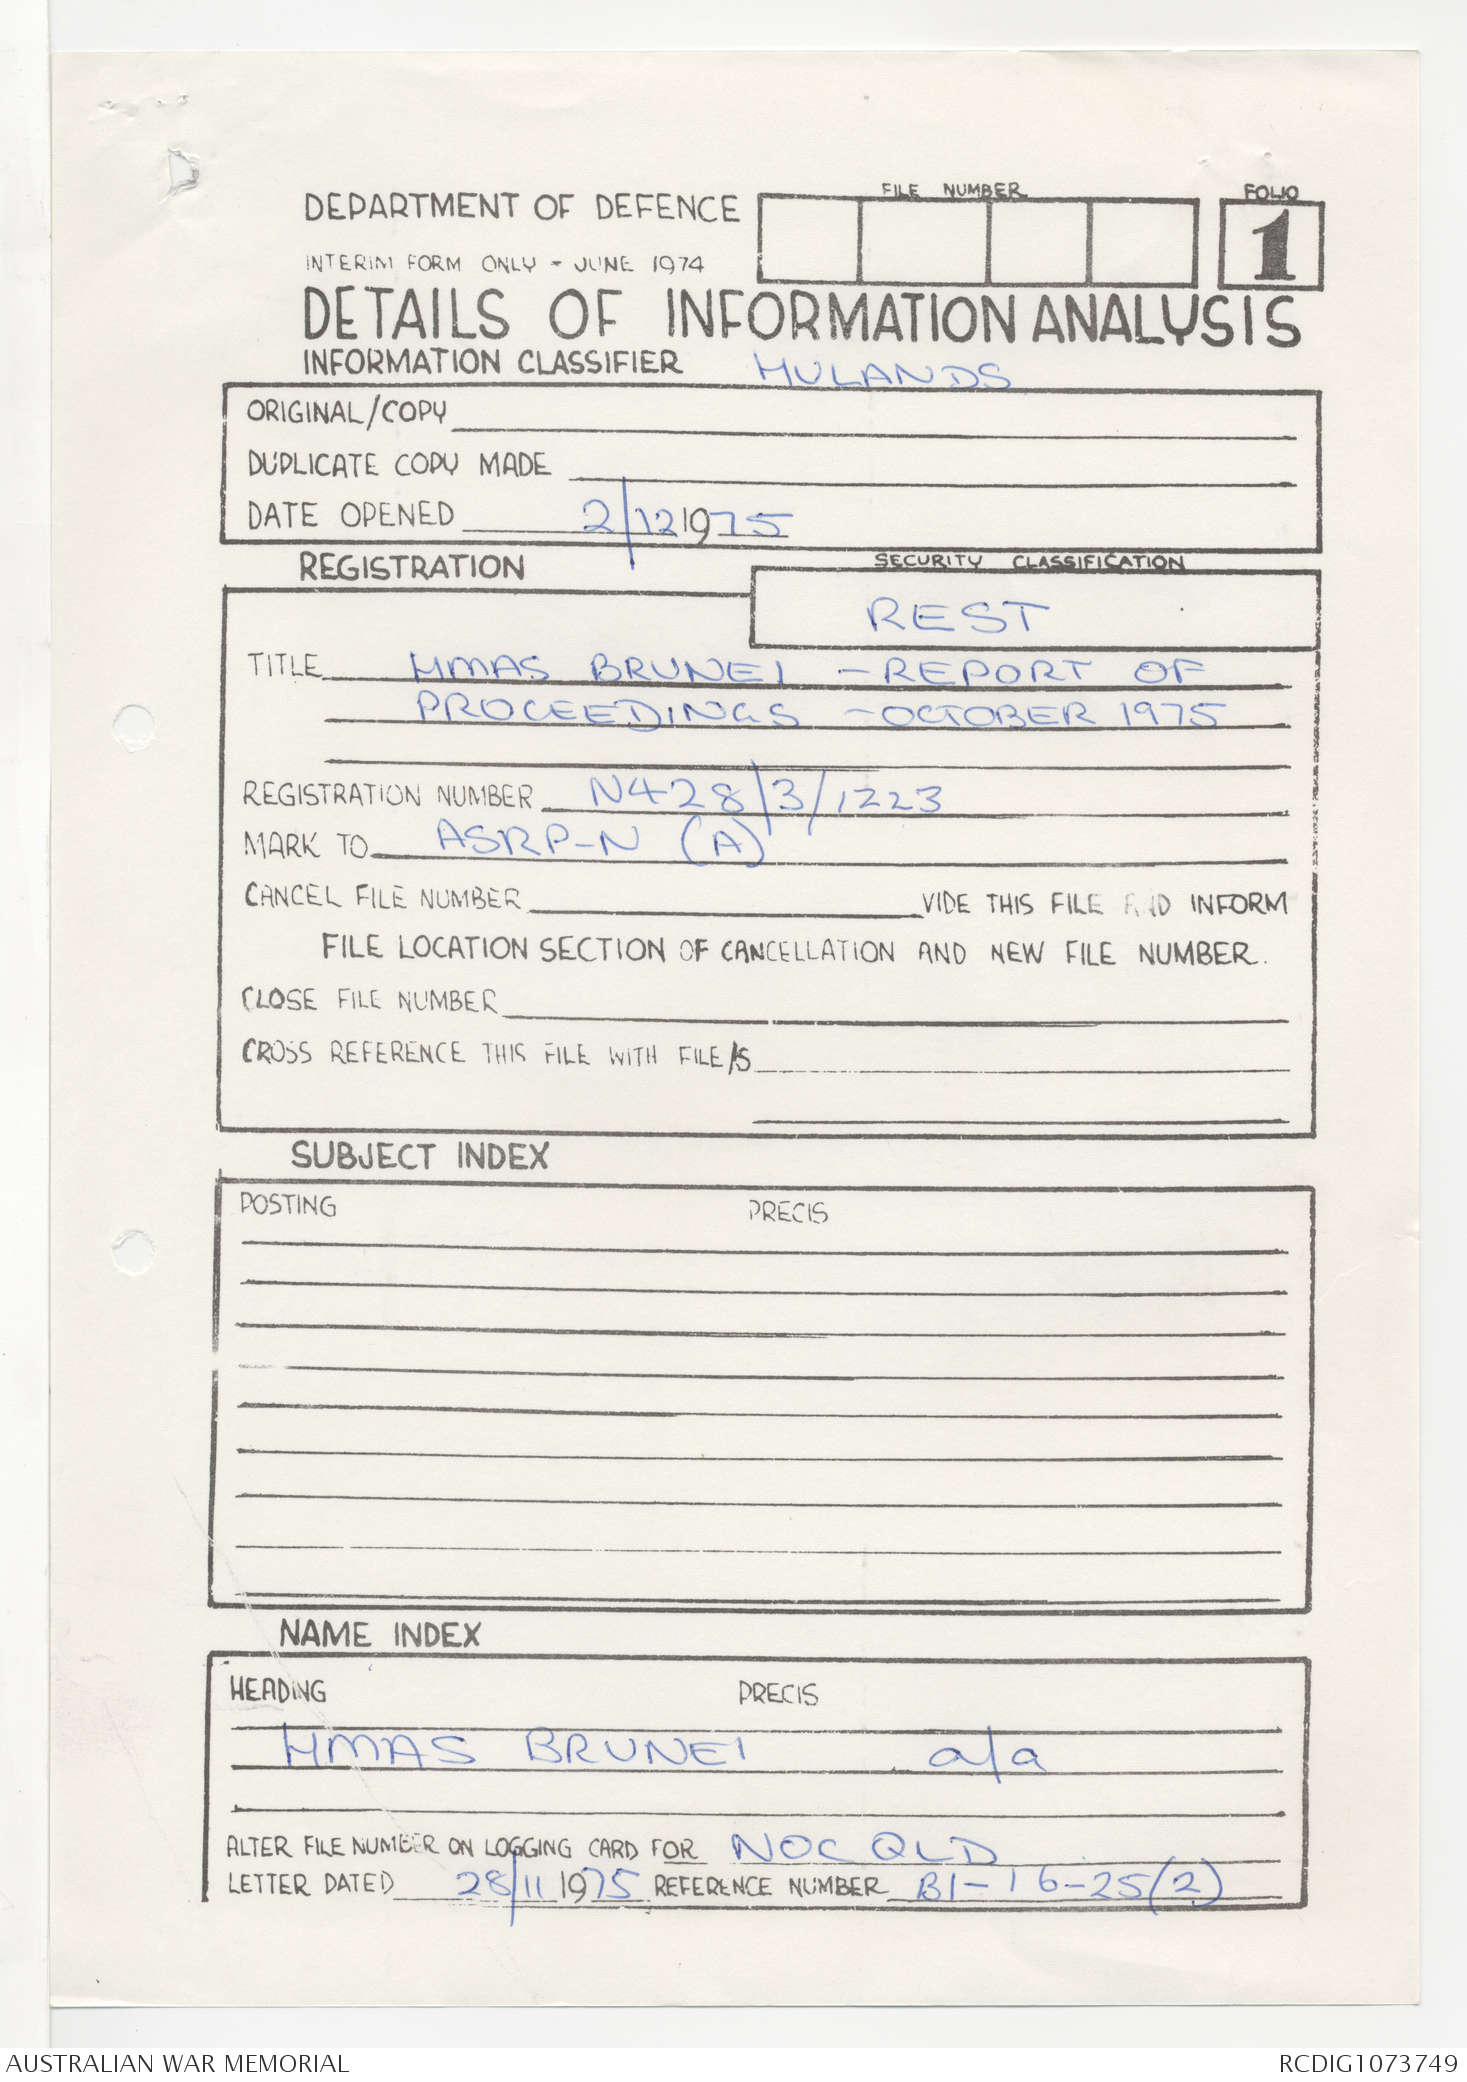 DEPARTMENT OF DEFENCE
FILE NUMBER
FOLIO
1
INTERIM FORM ONLY - JUNE 1974
DETAILS OF INFORMATION ANALYSIS
INFORMATION CLASSIFIER HULANDS
ORIGINAL/COPY
DUPLICATE COPY MADE
DATE OPENED 2/12 1975
REGISTRATION
SECURITY CLASSIFICATION
REST
TITLE HMAS BRUNEI - REPORT OF
PROCEEDINGS - OCTOBER 1975
REGISTRATION NUMBER N428/3/1223
MARK TO ASRP-N (A)
CANCEL FILE NUMBER VIDE THIS FILE AND INFORM
FILE LOCATION SECTION OF CANCELLATION AND NEW FILE NUMBER.
CLOSE FILE NUMBER
CROSS REFERENCE THIS FILE WITH FILE/S
SUBJECT INDEX
POSTING PRECIS
NAME INDEX
HEADING PRECIS
HMAS BRUNEI a/a
ALTER FILE NUMBER ON LOGGING CARD FOR NOC QLD
LETTER DATED 28/11 1975 REFERENCE NUMBER B1-16-25(2)
AUSTRALIAN WAR MEMORIAL
RCDIG1073749